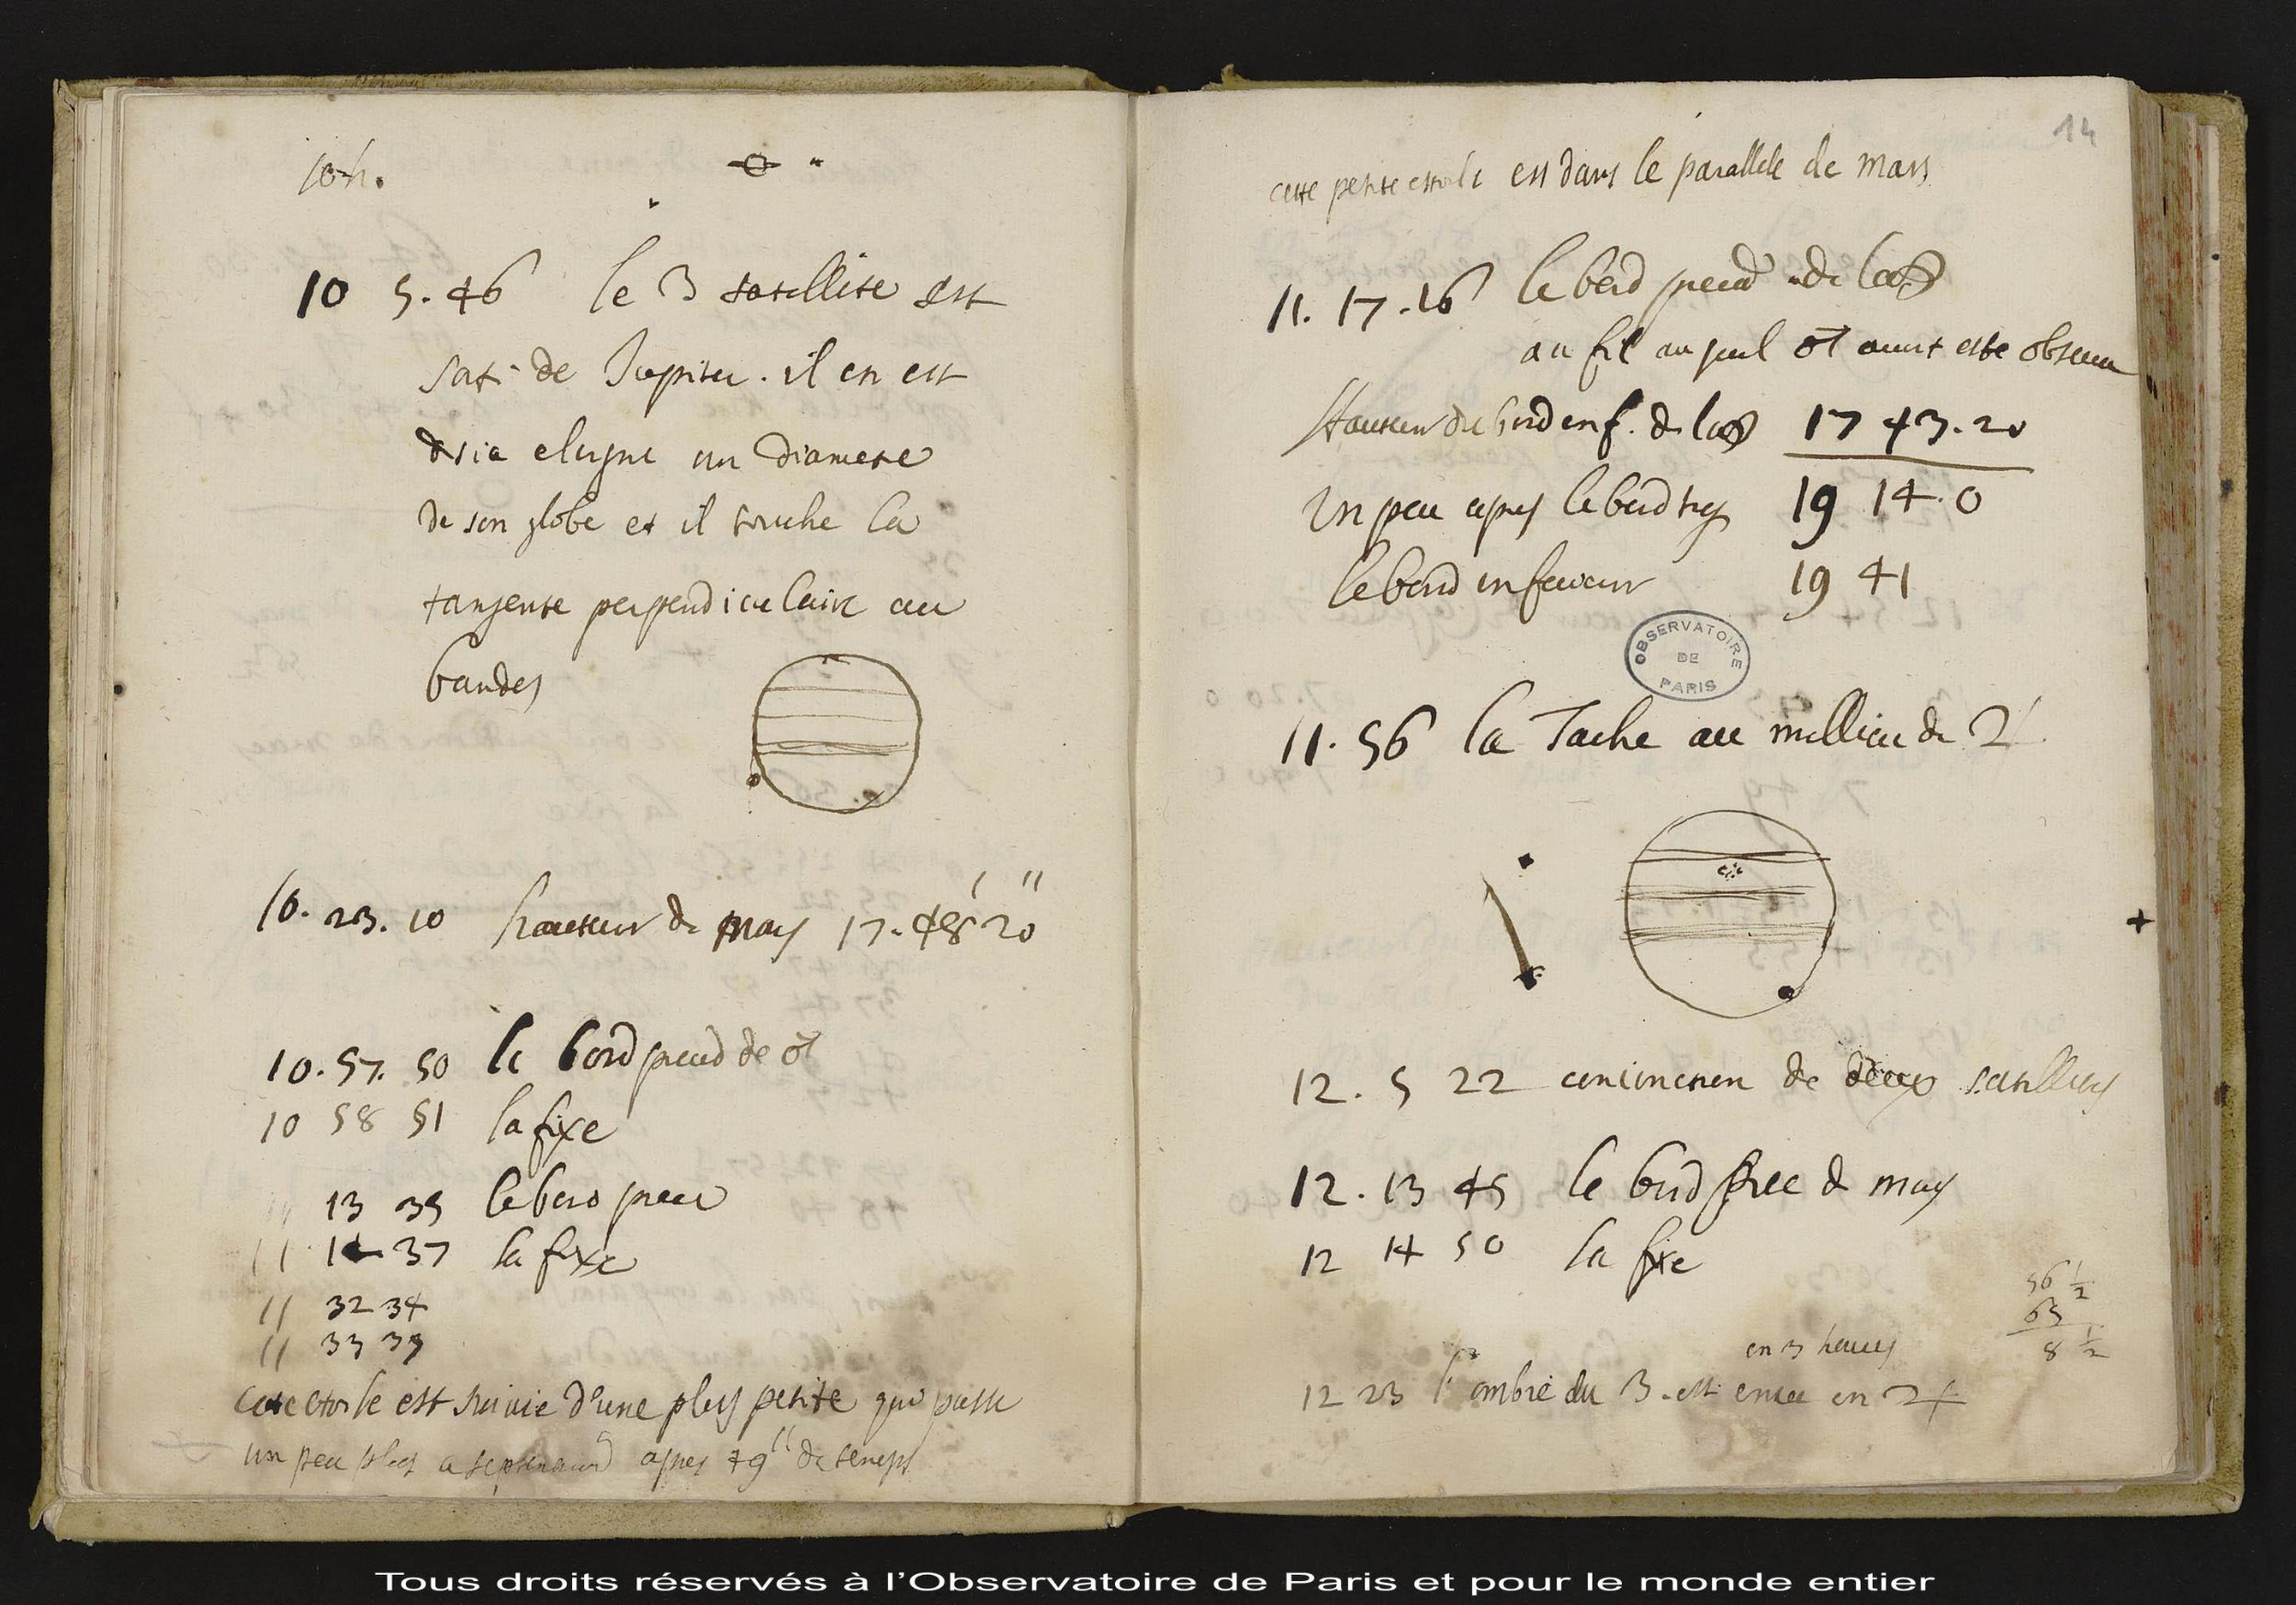 10h.
10 5.46 le 3 satellite est
sati de Jupiter. il en est
desia elogne un diametre
de son globe et il touche la
tangente perpendiculaire au
bandes
10. 23. 10 hauteur de mars 17. 48' 20''
10. 57. 50 le bord preced de ♂
10 58 51 la fixe
13 35 le bord prec
11 14 37 la fixe
11 32 34
11 33 39
cete etoile est suivie d'une plus petite qui passe
un peu plus a septentr apres 49'' de temps
14
cette petite estoile est dans le parallele de mars
11. 17. 16 le bord preced de la
au fil au quel ♂ avoit esté observé
Hauteur du bord inf. de la 17 43. 20
Un peu apres le bord 19 14. 0
le bord inferieur 19 41
OBSERVATOIRE
DE
PARIS
11. 56 la Tache au millieu de ♃
12. 5 22 conionction de deux satellites
12. 13 45 le bord prec de mars
12 14 50 la fixe
56 1/2
65
8 1/2
en 3 heures
12 23 l'ombre du 3. est entree en ♃
Tous droits réservés à l'Observatoire de Paris et pour le monde entier